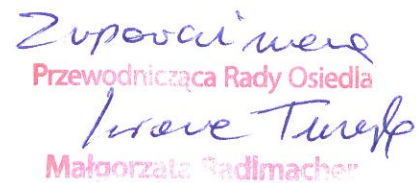 Z upoważnienia
Przewodnicząca Rady Osiedla
Małgorzata Radlmacher